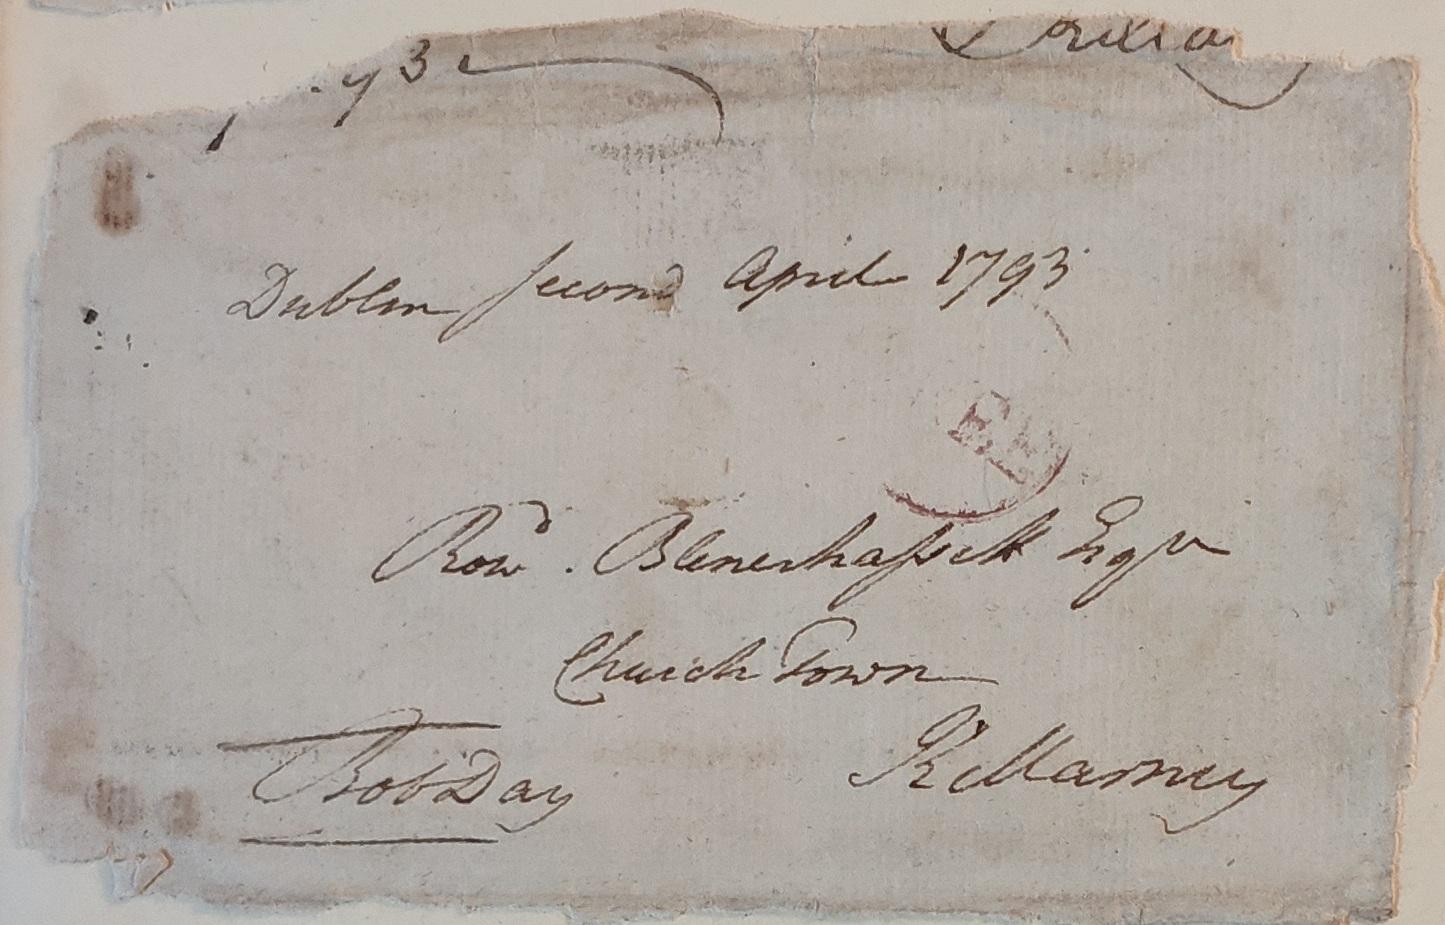 93
Dublin second April 1793
Rowd. Blenerhassett Esqr
Church Town
Killarney
Robt Day